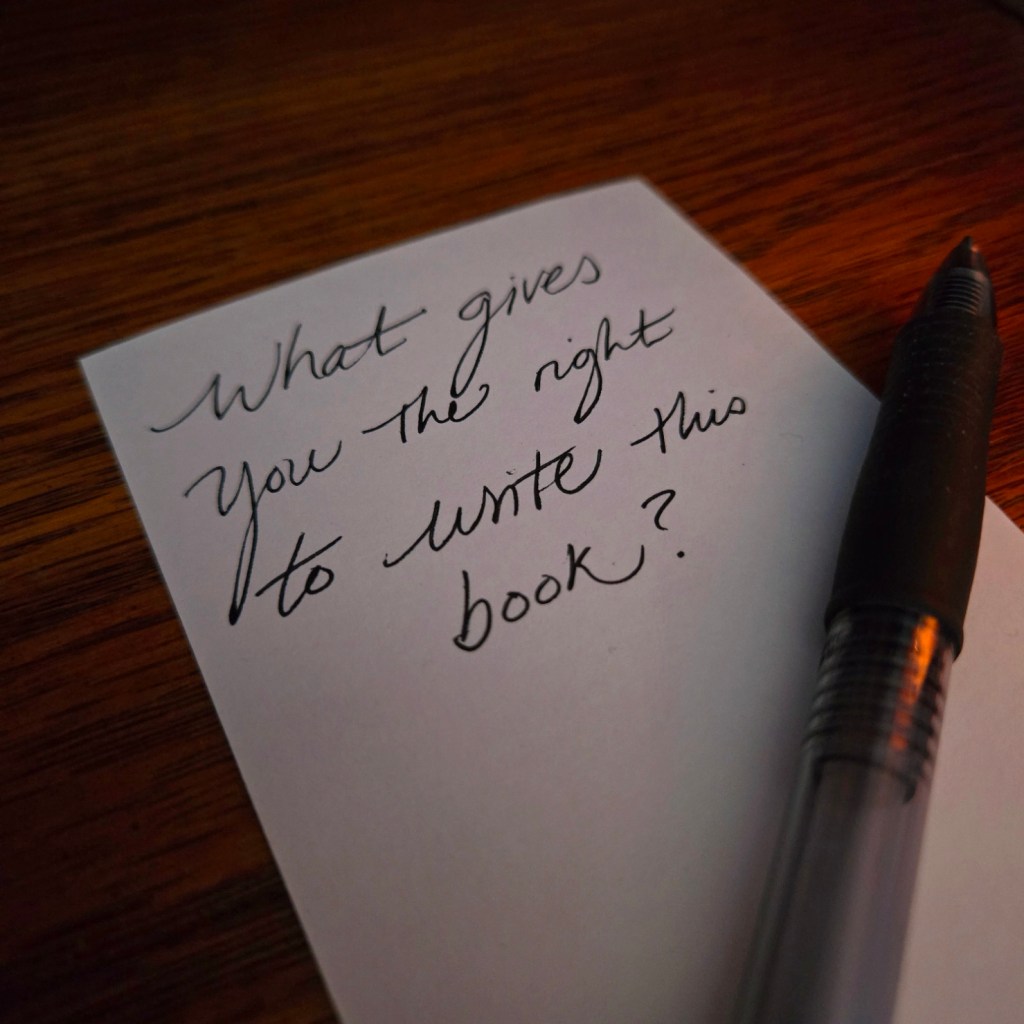 What gives
you the right
to write this
book?